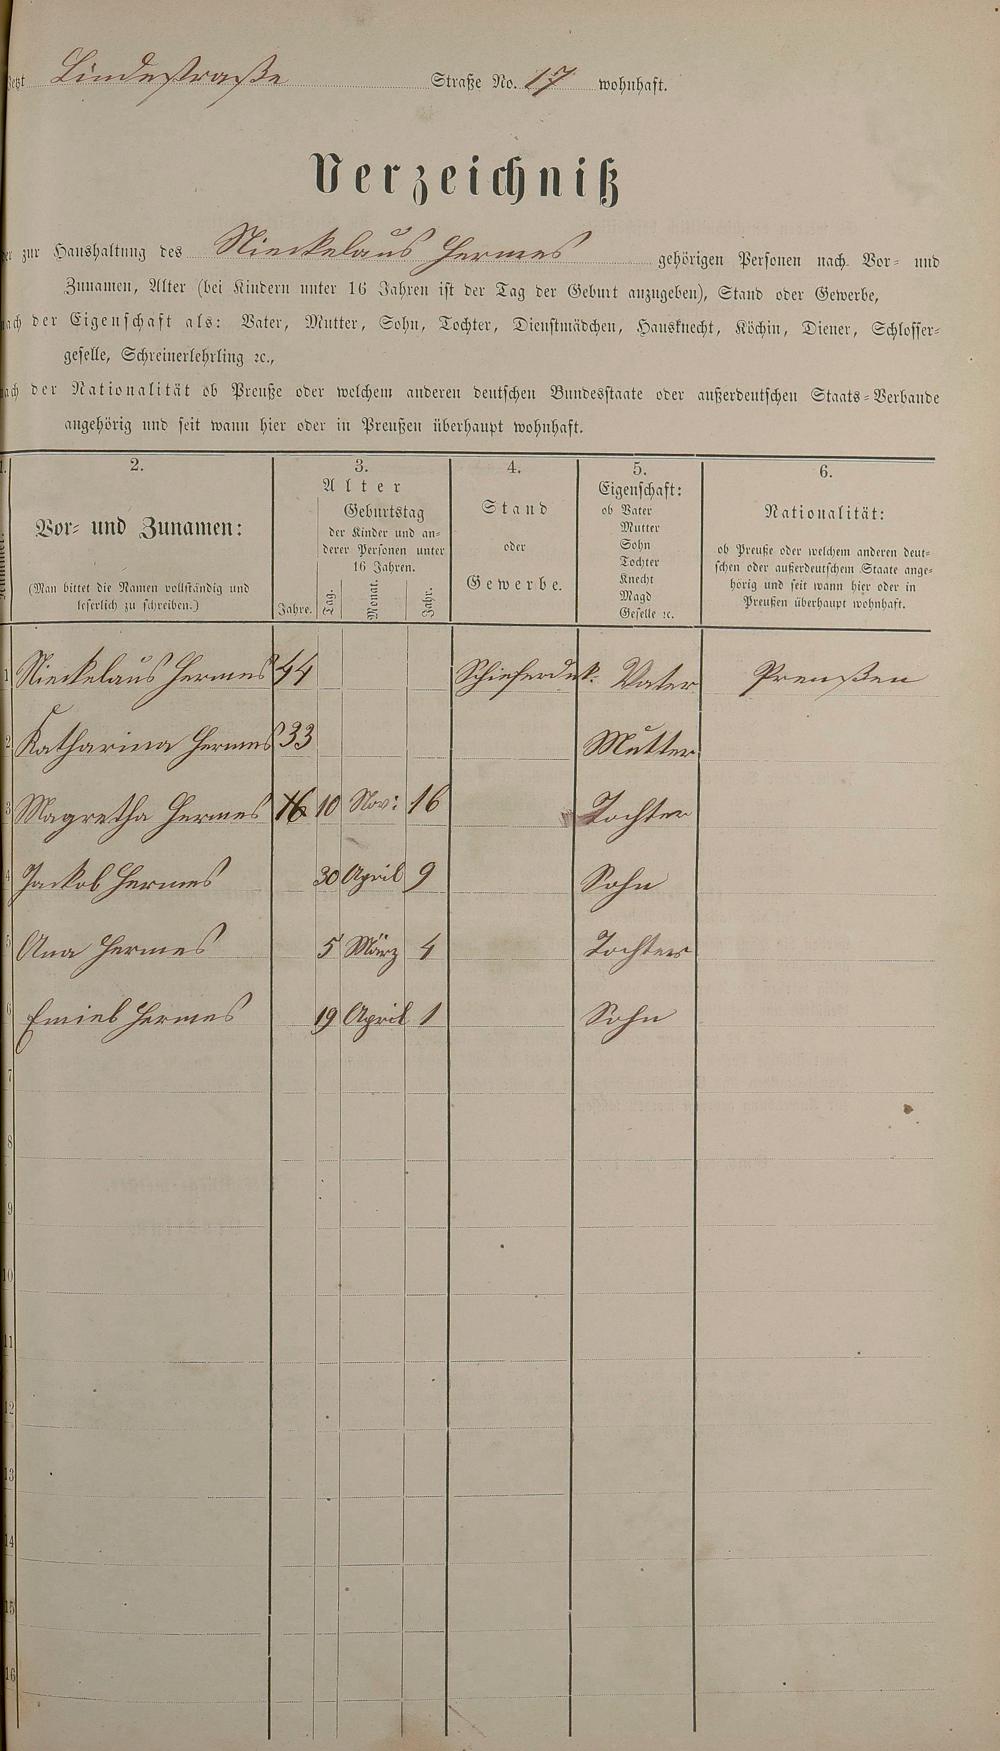 jetzt Lindestraße Straße No. 17 wohnhaft.
Verzeichniß
der zur Haushaltung des Nieckelaus Hermes gehörigen Personen nach Vor- und
Zunamen, Alter (bei Kindern unter 16 Jahren ist der Tag der Geburt anzugeben), Stand oder Gewerbe,
nach der Eigenschaft als: Vater, Mutter, Sohn, Tochter, Dienstmädchen, Hausknecht, Köchin, Diener, Schlosser-
geselle, Schreinerlehrling ꝛc.,
nach der Nationalität ob Preuße oder welchem anderen deutschen Bundesstaate oder außerdeutschen Staats-Verbande
angehörig und seit wann hier oder in Preußen überhaupt wohnhaft.
1.
Nummer.
2.
Vor- und Zunamen:
(Man bittet die Namen vollständig und
leserlich zu schreiben.)
3.
Alter
Jahre.
Geburtstag
der Kinder und an-
derer Personen unter
16 Jahren.
Tag.
Monat.
Jahr.
4.
Stand
oder
Gewerbe.
5.
Eigenschaft:
ob Vater
Mutter
Sohn
Tochter
Knecht
Magd
Geselle ꝛc.
6.
Nationalität:
ob Preuße oder welchem anderen deut-
schen oder außerdeutschem Staate ange-
hörig und seit wann hier oder in
Preußen überhaupt wohnhaft.
1 Nieckelaus Hermes 44 Schieferdek. Vater Preußen
2 Katharina Hermes 33 Mutter
3 Magretha Hermes 16 10 Nov: 16 Tochter
4 Jackob Hermes 30 April 9 Sohn
5 Ana Hermes 5 März 4 Tochter
6 Emiel Hermes 19 April 1 Sohn
7
8
9
10
11
12
13
14
15
16